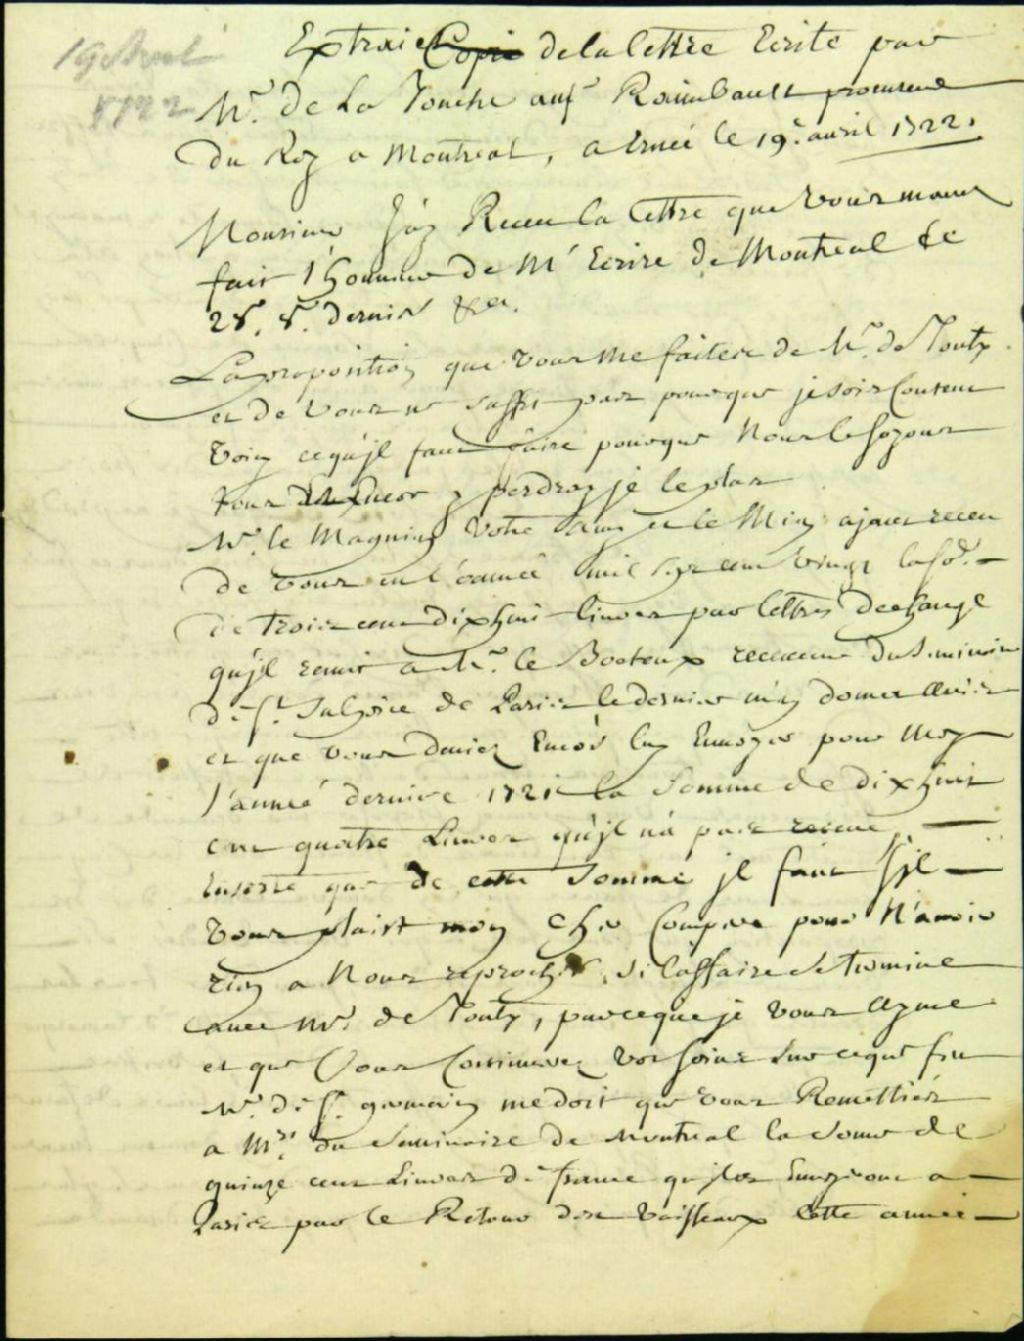 19 Avril
1722
Extraict Copie de la lettre Ecrite par
Mr. de La Touche au Sr Raimbault procureur
du Roy a Montreal, a Ernée le 19e. auril 1722.
Monsieur J'ay Receu la lettre que vous maues
fait l'honneur de M'Ecrire de Montreal le
28. 8e. dernier &ca.
La proposition que vous me faites de Mr. de Tonty
et de vous ne suffit pas pour que je sois Content
Voicy ce qu'jl faut faire pour que Nous le soyons
tous deux encor y perdray je le plus
Mr. le Magnin Votre amy et le Mien ajant receu
de vous en l'année mil sept cent vingt la so.e
de trois cent dixhuit liures par lettres dechange
qu'jl remit a Mr. le Bocteux receueur du Seminaire
de St. Sulpice de Paris le dernier m'en donna auis
et que vous deuiez Encor luy Enuoyer pour Moy
l'année derniere 1721 la Somme de dixhuit
cent quatre Liures qu'jl n'a pas receue,
Ensorte que de cette Somme jl faut s'jl
vous plaist mon Cher Compere pour N'auoir
rien a Nous reprocher, si l'affaire se termine
auec Mr. de Tonty, parceque je vous ayme
et que Vous Continuerez vos soins sur ceque feu
Mr. de St. germain me doit que vous Remettiés
a Mrs. du Seminaire de Montreal la Some de
quinze cent Liures de france qu'jls Enuoiront a
Paris par le Retour des vaisseaux Cette année